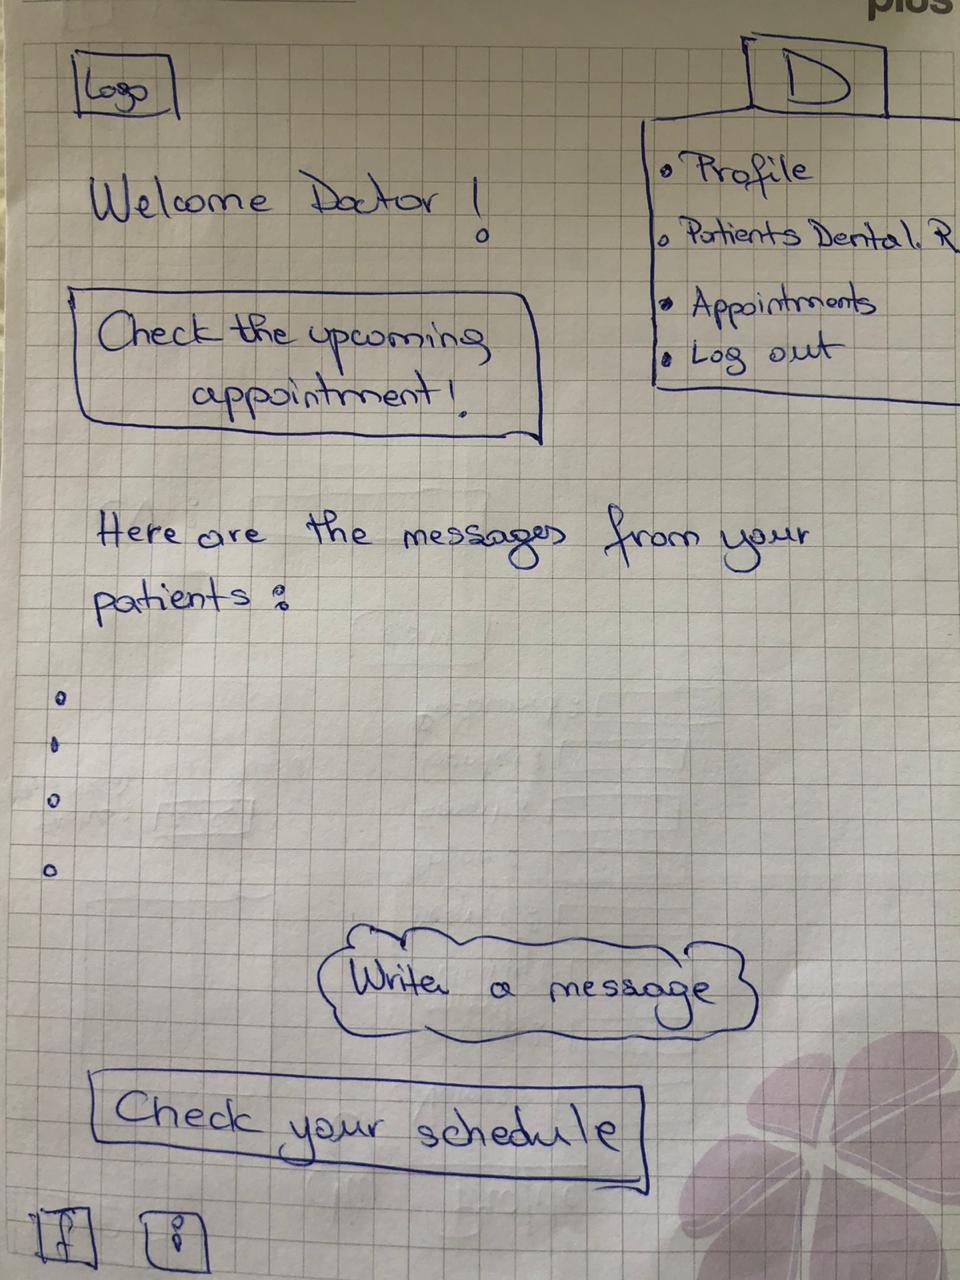 plus
Logo
D
Welcome Doctor!
• Profile
• Patients Dental. R
• Appointments
• Log out
Check the upcoming
appointment!
Here are the messages from your
patients:
Write a message
Check your schedule
f i